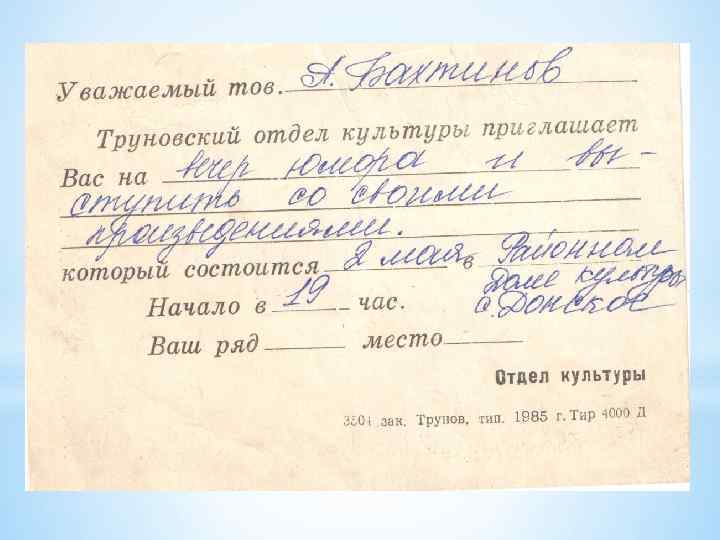 Уважаемый тов. А. Бахтинов
Труновский отдел культуры приглашает
Вас на вечер юмора и вы-
ступить со своими
произведениями.
который состоится 2 мая в Районном
Доме культуры
Начало в 19 час. с. Донское
Ваш ряд место
Отдел культуры
3504 зак. Трунов. тип. 1985 г. Тир 4000 Д